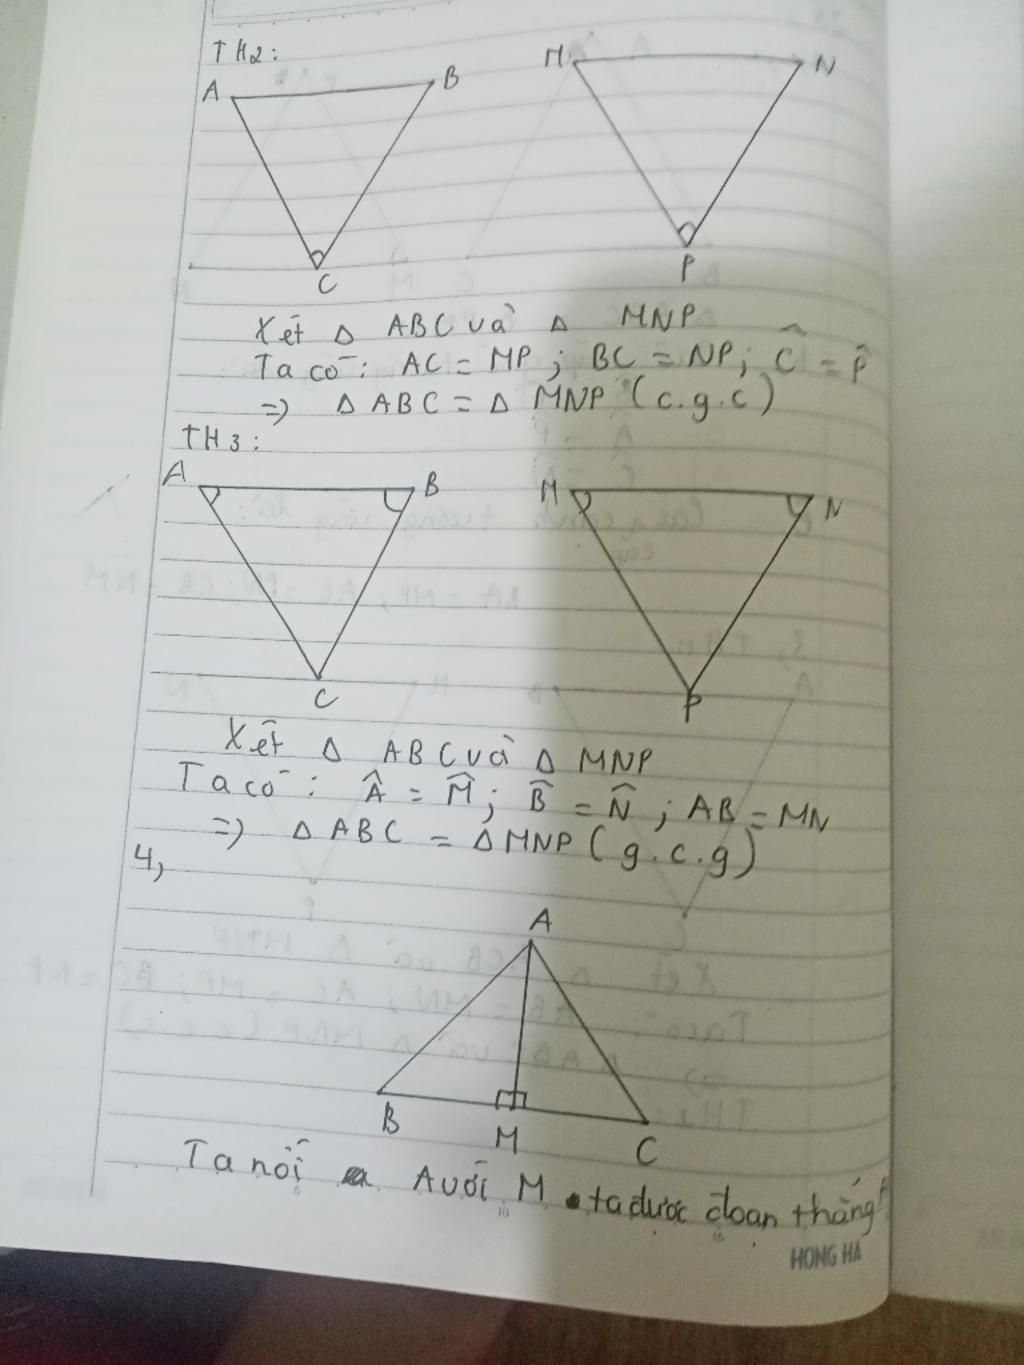 TH2:
A B M N
C P
Xét Δ ABC và Δ MNP
Ta có: AC = MP; BC = NP; Ĉ = P̂
=> Δ ABC = Δ MNP (c.g.c)
TH3:
A B M N
C P
Xét Δ ABC và Δ MNP
Ta có: Â = M̂; B̂ = N̂; AB = MN
=> Δ ABC = Δ MNP (g.c.g)
4,
A
B M C
Ta nối A với M ta được đoạn thẳng
HONG HA